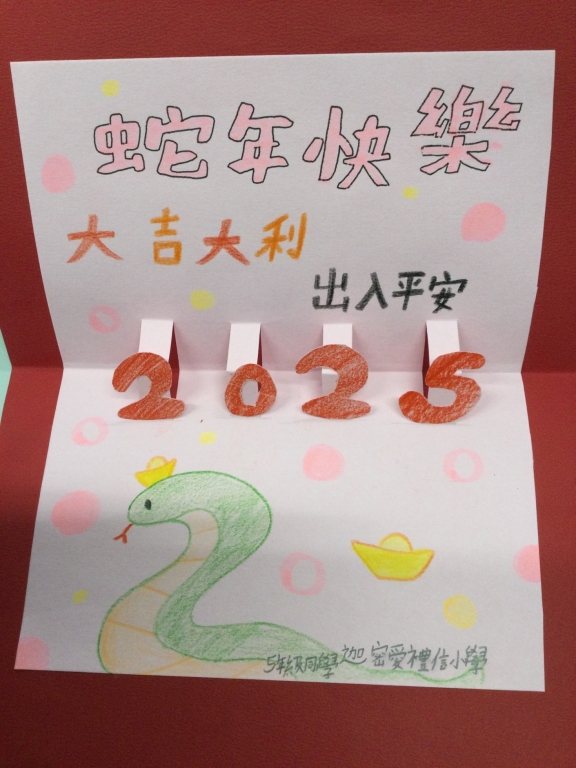 蛇年快樂
大吉大利
出入平安
2025
5年級同學 迦密愛禮信小學